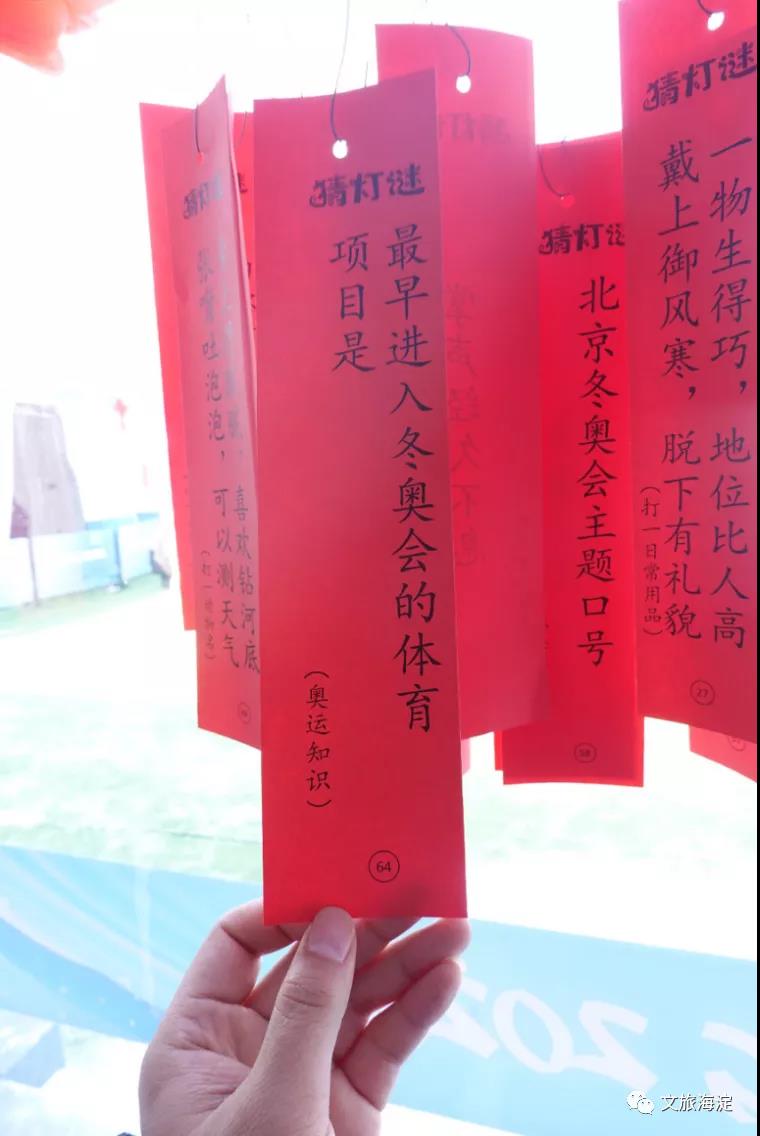 猜灯谜
最早进入冬奥会的体育
项目是
（奥运知识）
64
猜灯谜
张嘴吐泡泡，可以测天气
喜欢钻河底
猜灯谜
北京冬奥会主题口号
58
猜灯谜
一物生得巧，地位比人高
戴上御风寒，脱下有礼貌
（打一日常用品）
27
掌声经久不息
文旅海淀